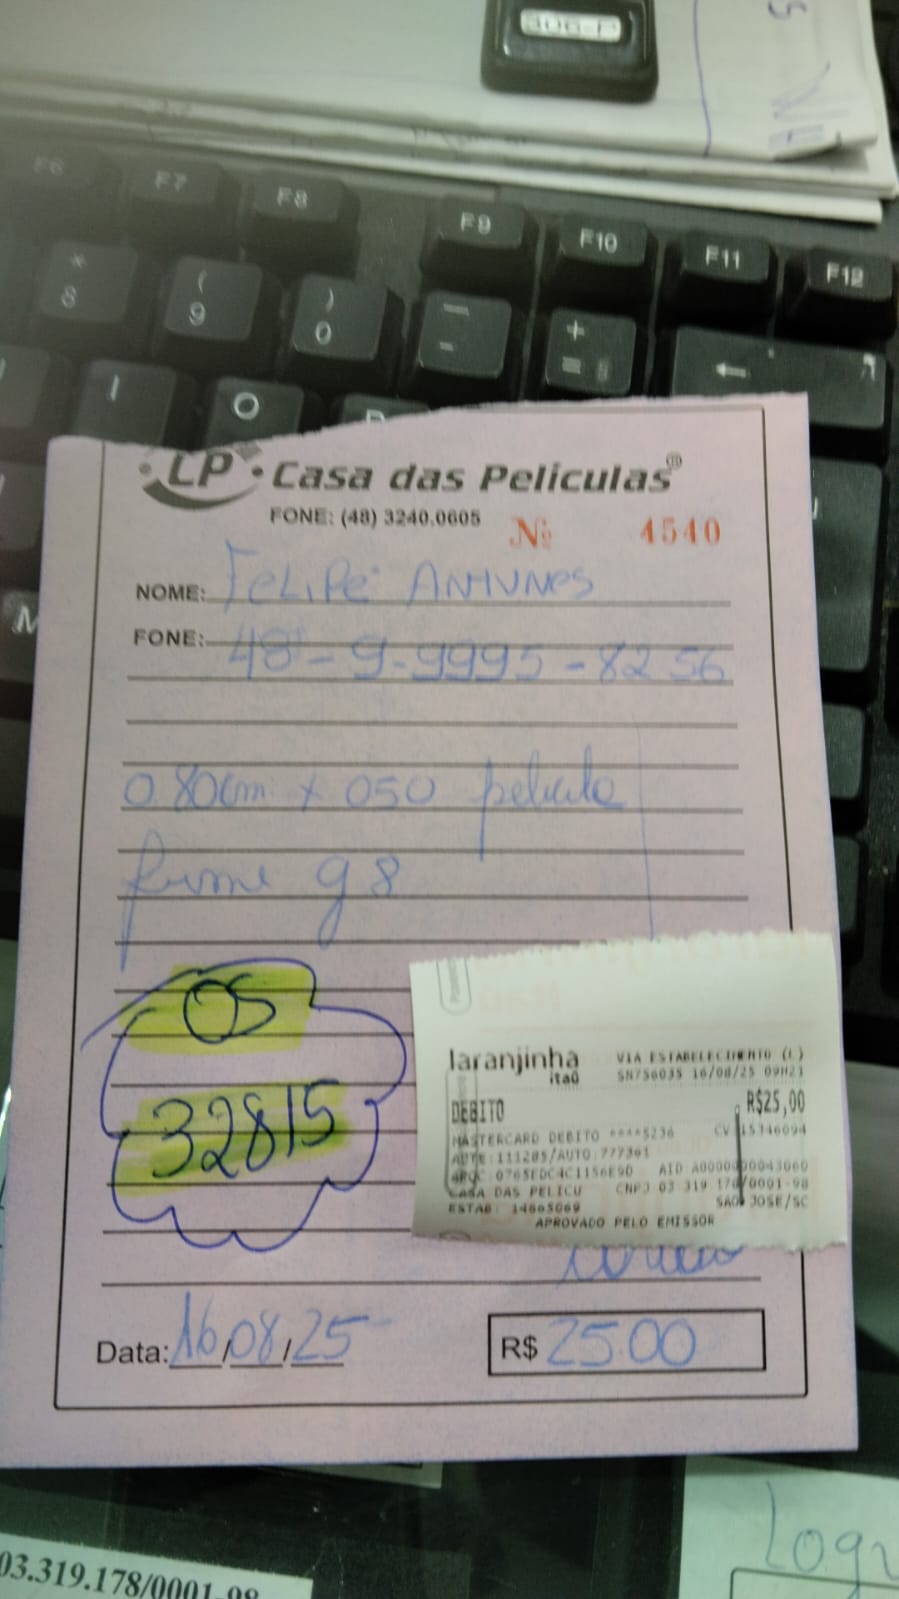 F6 F7 F8 F9 F10 F11 F12
* ( ) — +
8 9 0 - =
I O P
LP · Casa das Peliculas®
FONE: (48) 3240.0605 Nº 4540
NOME: FELIPE ANTUNES
FONE: 48-9-9995-8256
0.80cm x 050 pelicula
fume g8
OS
32815
laranjinha VIA ESTABELECIMENTO (L)
itaú SN756035 16/08/25 09H21
DEBITO R$25,00
MASTERCARD DEBITO ****5236 CV:15346094
AUTE:111205/AUTO:777361
ARQC:0765FDC4C1156E90 AID A0000000043060
CASA DAS PELICU CNPJ 03 319 178/0001-98
ESTAB: 14665069 SAO JOSE/SC
APROVADO PELO EMISSOR
Data: 16/08/25 R$ 25.00
03.319.178/0001-98